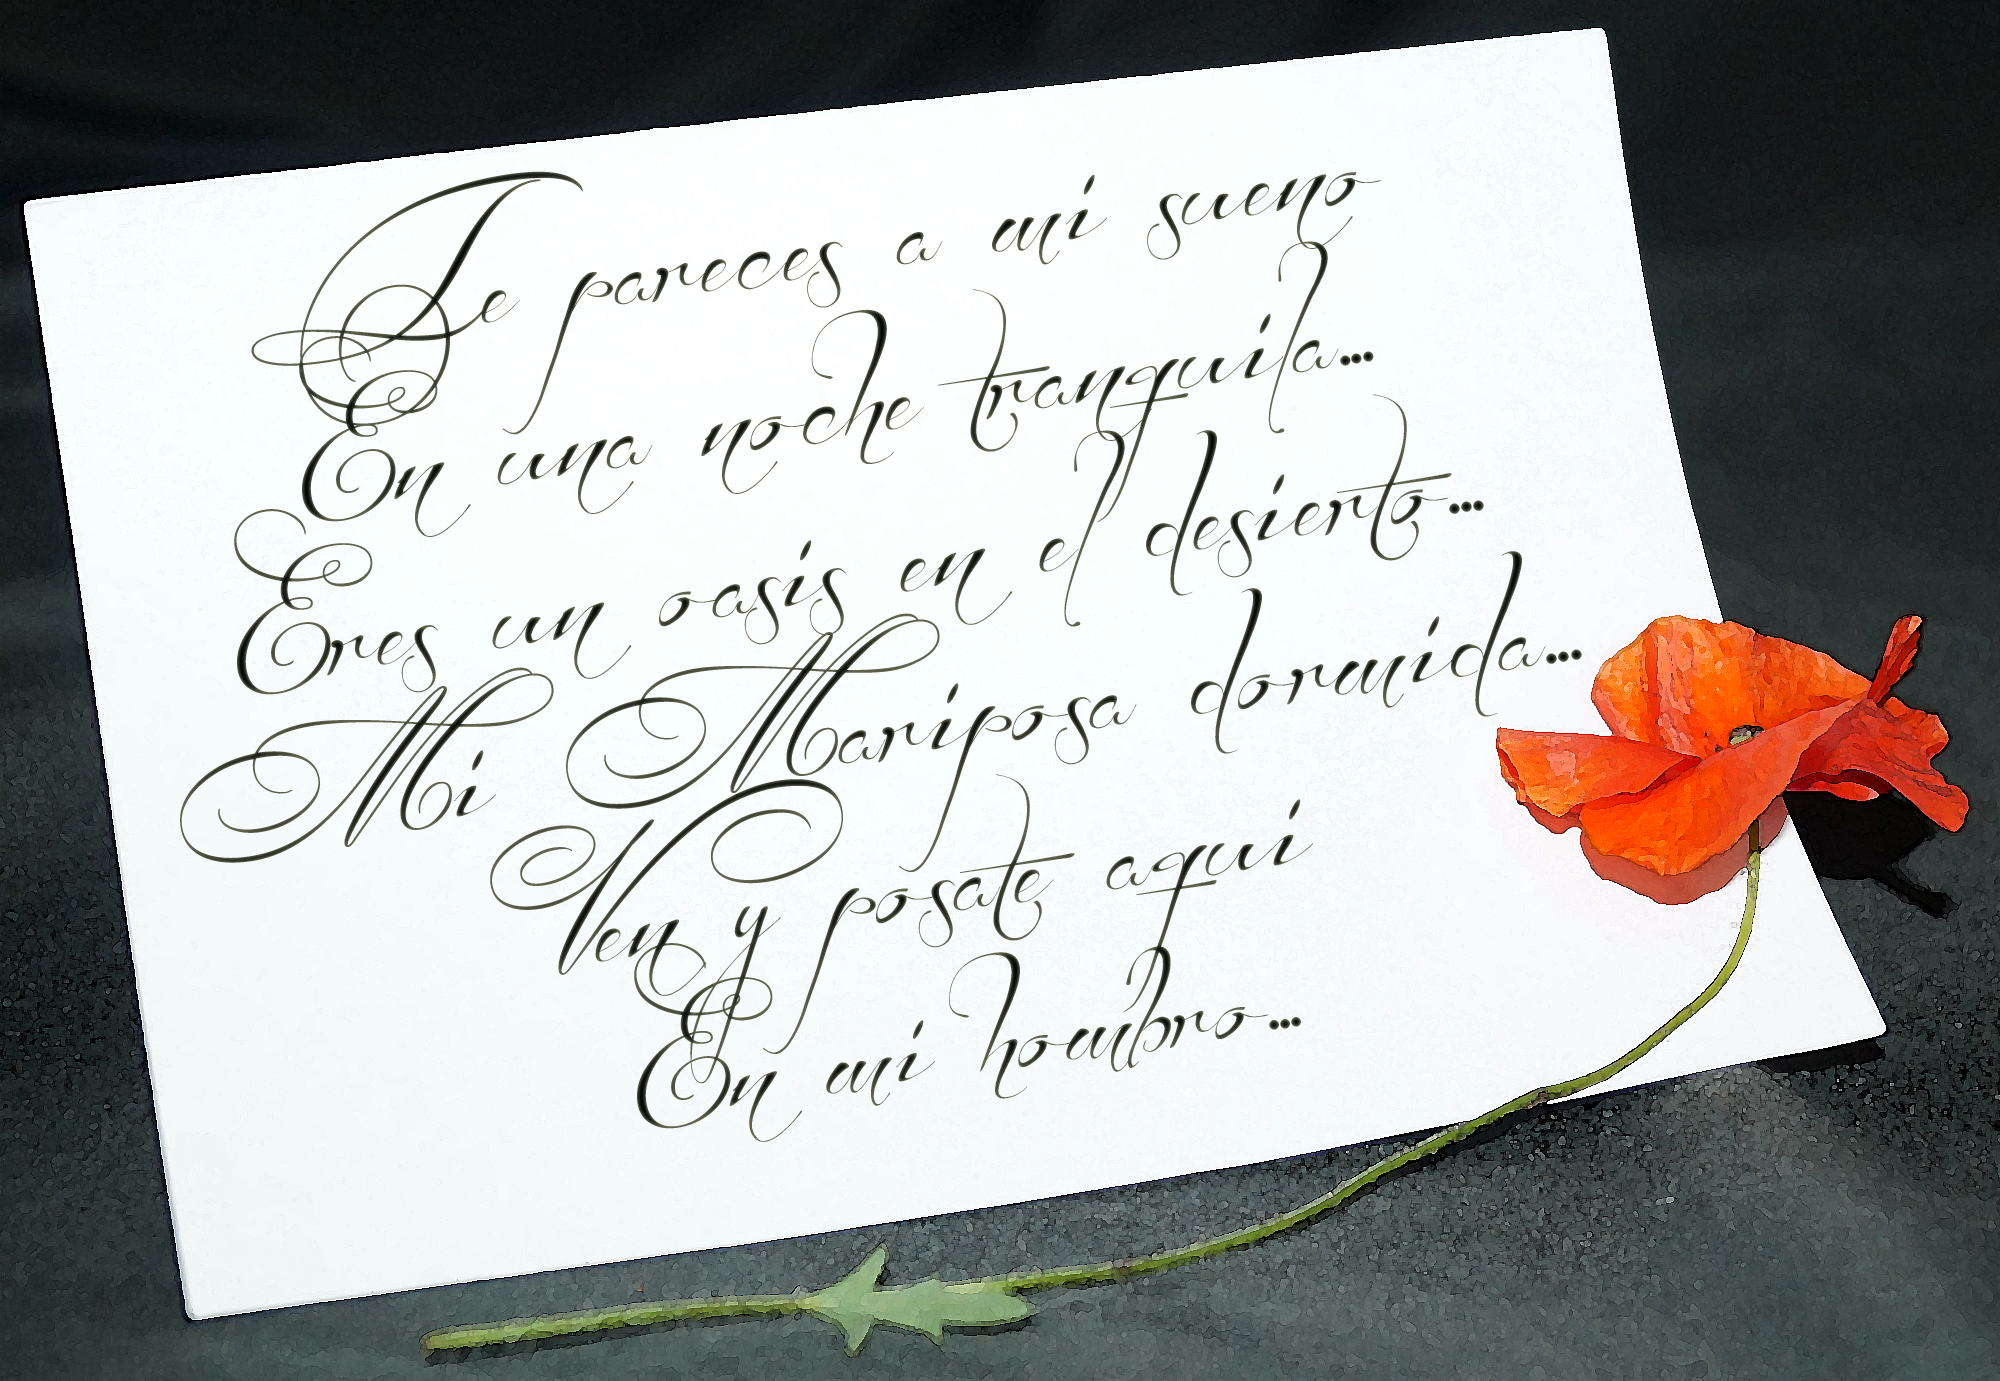 Te pareces a mi sueno
En una noche tranquila...
Eres un oasis en el desierto...
Mi Mariposa dormida...
Ven y posate aqui
En mi hombro...